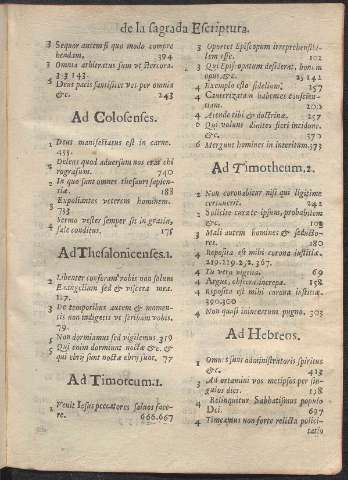 de la sagrada Escriptura.
3 Sequor autem si quo modo compre
hendam, 394
3 Omnia arbitratus sum vt stercora.
3 3 143.
5 Deus pacis sanctificet vos per omnia
&c. 243
Ad Colosenses.
1 Deus manifestatus est in carne.
455.
2 Delens quod aduersum nos erat chi
rografum. 740
2 In quo sunt omnes thesauri sapien-
tiæ. 188
3 Expoliantes veterem hominem.
733
Sermo vester semper sit in gratia,
4 sale conditus, 175
Ad Thesalonicenses.1.
2 Libenter conferam vobis non solum
Euangelium sed & viscera mea.
127.
De temporibus autem & momen-
tis non indigetis vt scribam vobis.
79.
5 Non dormiamus sed vigilemus. 319
5 Qui enim dormiunt nocte &c. &
qui ebrij sunt nocte ebrij sunt. 77
Ad Timoteum.1.
1 Venit Iesus peccatores saluos face-
re. 666.667
3 Oportet Episcopum irreprehensibi-
lem esse. 102
3 Qui Episcopatum desiderat, bonum
opus, &c. 25 142
4 Exemplo esto fidelium, 157
Cauterizatam habentes conscien-
tiam. 202
4 Attende tibi & doctrinæ. 257
6 Qui volunt diuites fieri incidunt.
&c. 570
6 Mergunt homines in interitum. 373
Ad Timotheum.2.
2 Non coronabitur nisi qui ligitime
certauerit. 242
2 Solicite curate ipsum, probabilem
&c. 103
3 Mali autem homines & seducto-
res. 280
4 Reposita est mihi corona iustitiæ.
219.229.2 2.367.
4 Tu vero vigila. 69
4 Argue, obsecra increpa. 158
4 Reposita est mihi corona iustitiæ
390.300
Non quasi inincertum pugno. 303
Ad Hebreos.
1 Omnes sunt administratorij spiritus
&c. 413
3 Adortamini vos metipsos per sin-
gulos dies. 138
4 Relinquitur Sabbatismus populo
Dei. 697
4 Timeamus non forte relicta policita-
tatio